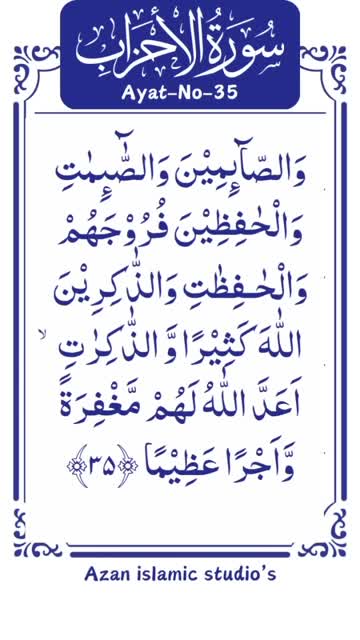 سُوْرَةُ الْأَحْزَاب
Ayat-No-35
وَالصَّآئِمِيْنَ وَالصّٰٓئِمٰتِ
وَالْحٰفِظِيْنَ فُرُوْجَهُمْ
وَالْحٰفِظٰتِ وَالذّٰكِرِيْنَ
اللّٰهَ كَثِيْرًا وَّ الذّٰكِرٰتِ ۙ
اَعَدَّ اللّٰهُ لَهُمْ مَّغْفِرَةً
وَّاَجْرًا عَظِيْمًا ﴿۳۵﴾
Azan islamic studio's